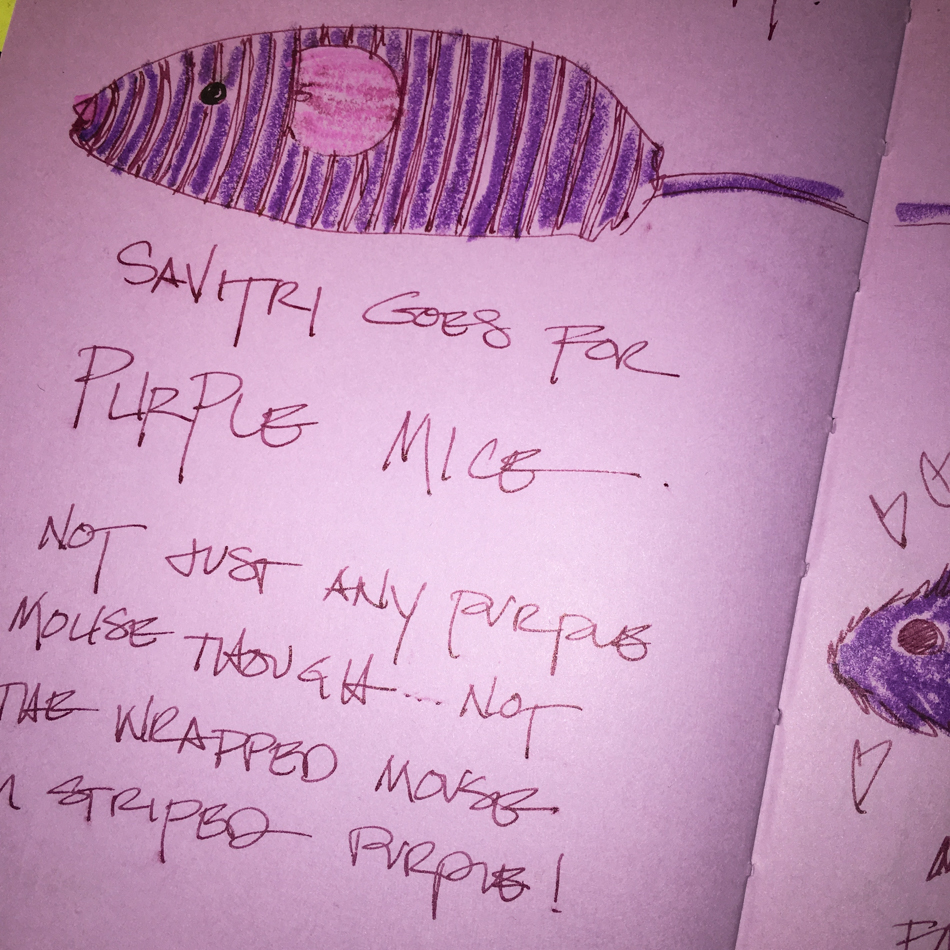 SAVITRI GOES FOR
PURPLE MICE.
NOT JUST ANY PURPLE
MOUSE THOUGH... NOT
THE WRAPPED MOUSE
STRIPED PURPLE!